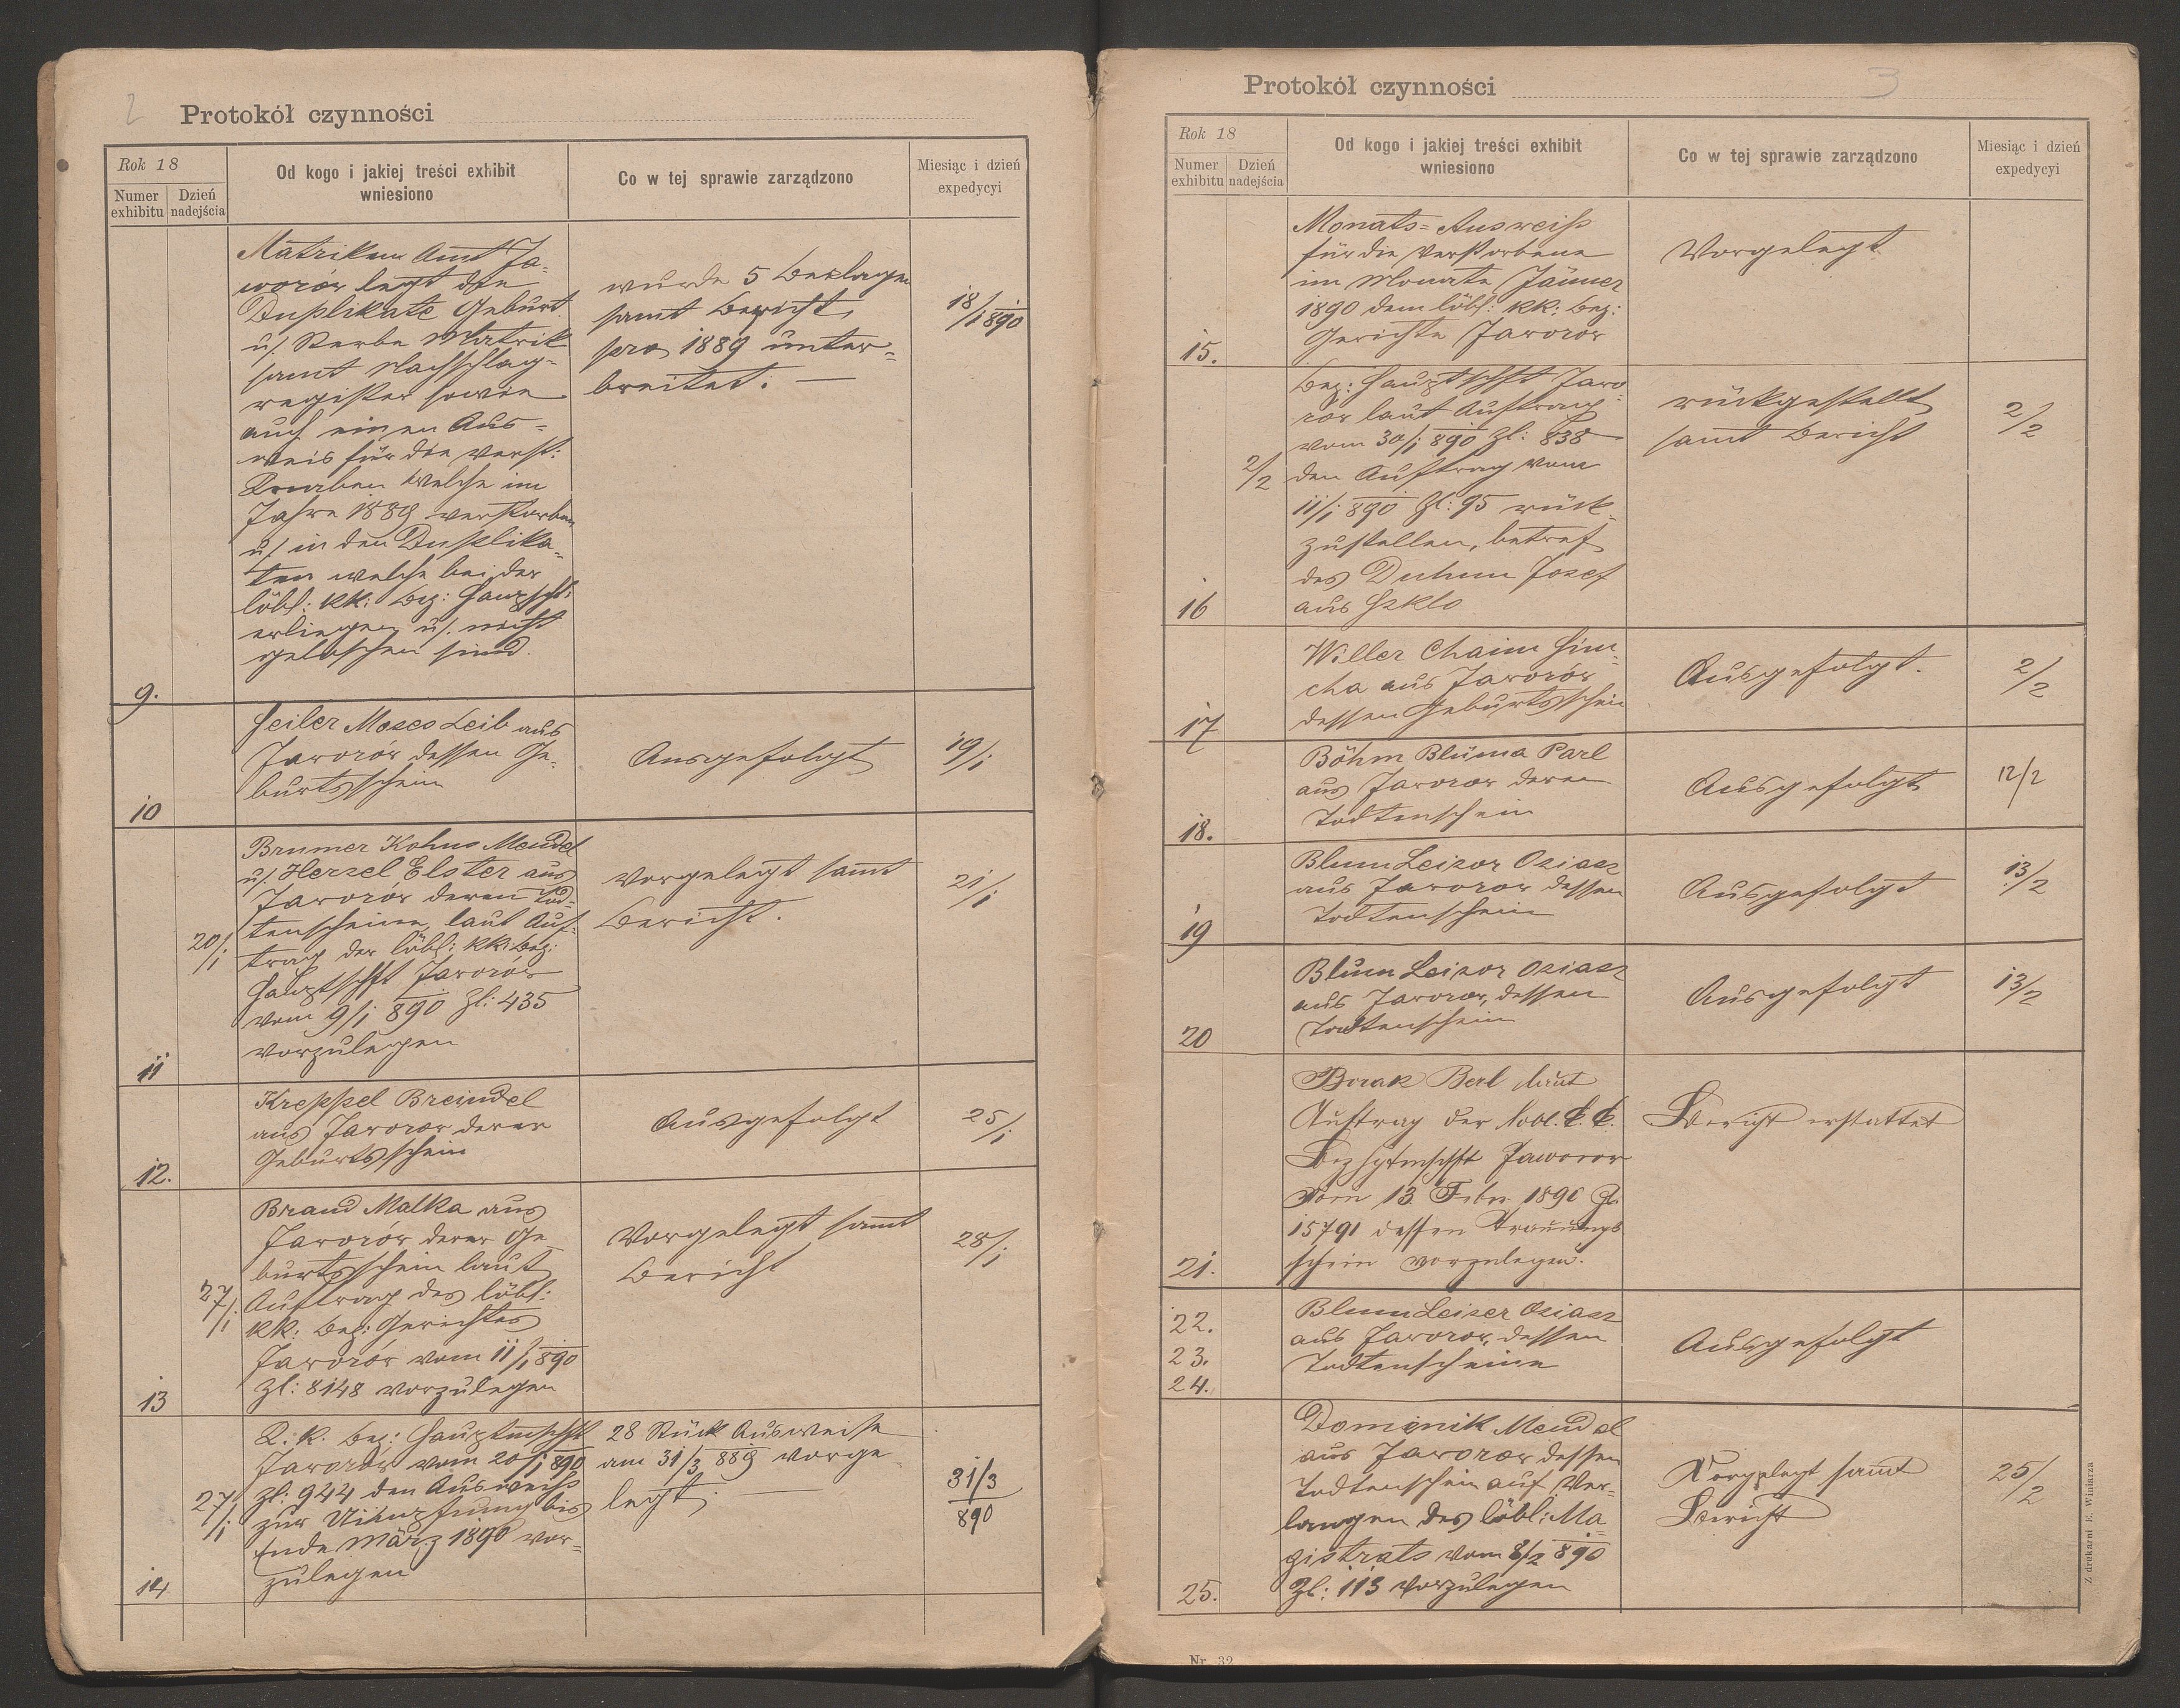 2
Protokół czynności
Rok 18
Numer exhibitu
Dzień nadejścia
Od kogo i jakiej treści exhibit wniesiono
Co w tej sprawie zarządzono
Miesiąc i dzień expedycyi
9.
Matriken Amt Ja=
worów legt die
Duplikate Geburt
u/. Sterbe Matrik
samt Nachschlag=
register sowie
auch einen Aus=
weis für die verst:
Knaben welche im
Jahre 1889 verstorben
u/. in den Duplika=
ten welche bei der
löbl: kk: Bez: Hauptsch:
erliegen u/. nicht
geloschen sind.
wurde 5 Beilagen
samt Bericht
pro 1889 unter=
breitet. —
18/1 890
10
Heiler Moses Leib aus
Jaworów dessen Ge=
burtsschein
Ausgefolgt
19/1
11
20/1
Brumer Kohus Mendel
u/. Hersel Elster aus
Jaworów deren Tod=
tenscheine laut Auf=
trag der löbl: kk: Bez:
Hauptschft Jaworów
vom 9/1 890 Zl: 435
vorzulegen
vorgelegt samt
Bericht.
21/1
12.
Kreppel Breindel
aus Jaworow deren
Geburtsschein
Ausgefolgt
25/1
13
27/1
Brand Malka aus
Jaworów deren Ge
burtsschein laut
Auftrag des löbl:
kk: Bez: Gerichtes
Jaworów vom 11/1 890
Zl: 8148 vorzulegen
Vorgelegt samt
Bericht
28/1
14
27/1
K. k. Bez: Hauptmschft
Jaworów vom 20/1 890
Zl: 944 den Ausweiss
zur bis
Ende März 1890 vor=
zulegen
28 Stück Ausweise
am 31/3 889 vorge=
legt. —
31/3
890
3
Protokół czynności
Rok 18
Numer exhibitu
Dzień nadejścia
Od kogo i jakiej treści exhibit wniesiono
Co w tej sprawie zarządzono
Miesiąc i dzień expedycyi
15.
Monats=Ausweiss
für die Verstorbene
im Monate Jänner
1890 dem löbl: kk: Bez:
Gerichte Jaworow
Vorgelegt
16
2/2
Bez: Hauptschft Jawo
row laut Auftrag
vom 30/1 890 Zl: 838
den Auftrag vom
11/1 890 Zl: 95 rück=
zustellen, betref
des Duhum Josef
aus Szklo
rückgestellt
samt Bericht
2/2
17
Willer Chaim Sim=
cha aus Jaworów
dessen Geburtsschein
Ausgefolgt.
2/2
18.
Böhm Blüma Parl
aus Jaworow deren
Todtenschein
Ausgefolgt
12/2
19
Blum Leisor Osiasz
aus Jaworow dessen
Todtenschein
Ausgefolgt
13/2
20
Blum Leisor Osiasz
aus Jaworow, dessen
Todtenschein
Ausgefolgt
13/2
21.
Borak Berl laut
Auftrag der löbl. k. k.
Bezhptmschft Jaworow
vom 13 Febr. 1890 Zl.
15791 dessen Trauungs
schein vorzulegen.
Bericht erstattet
22.
23.
24.
Blum Leiser Osiasz
aus Jaworow, dessen
Todtenscheine
Ausgefolgt
25.
Dominik Mendel
aus Jaworow dessen
Todtenschein auf Ver=
langen des löbl: Ma=
gistrats vom 8/2 890
Zl: 113 vorzulegen
Vorgelegt samt
Bericht
25/2
Z drukarni E. Winiarza
Nr. 32